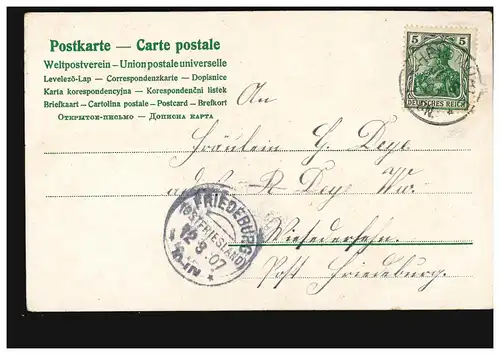 Postkarte — Carte postale
Weltpostverein — Union postale universelle
Levelező-Lap — Correspondenzkarte — Dopisnice
Karta korespondencyjna — Korespondenční listek
Briefkaart — Cartolina postale — Postcard — Brefkort
Открытое-письмо — Дописна карта
5 5
DEUTSCHES REICH
An
Fräulein G. Deye
R Deye Ww.
Wiesederfehn
Post Friedeburg.
FRIEDEBURG
(OSTFRIESLAND)
12 3 07